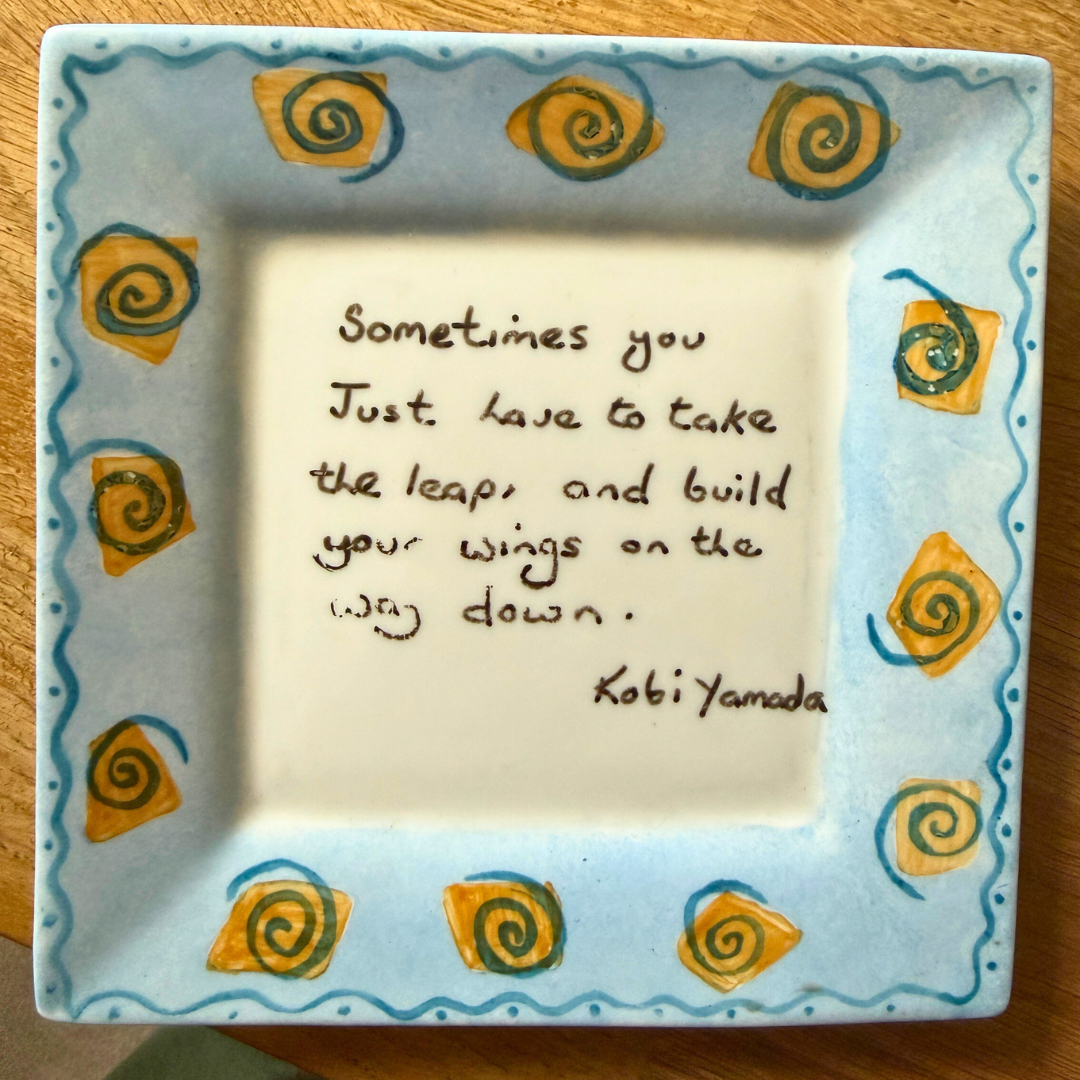 Sometimes you
Just have to take
the leap, and build
your wings on the
way down.
Kobi Yamada